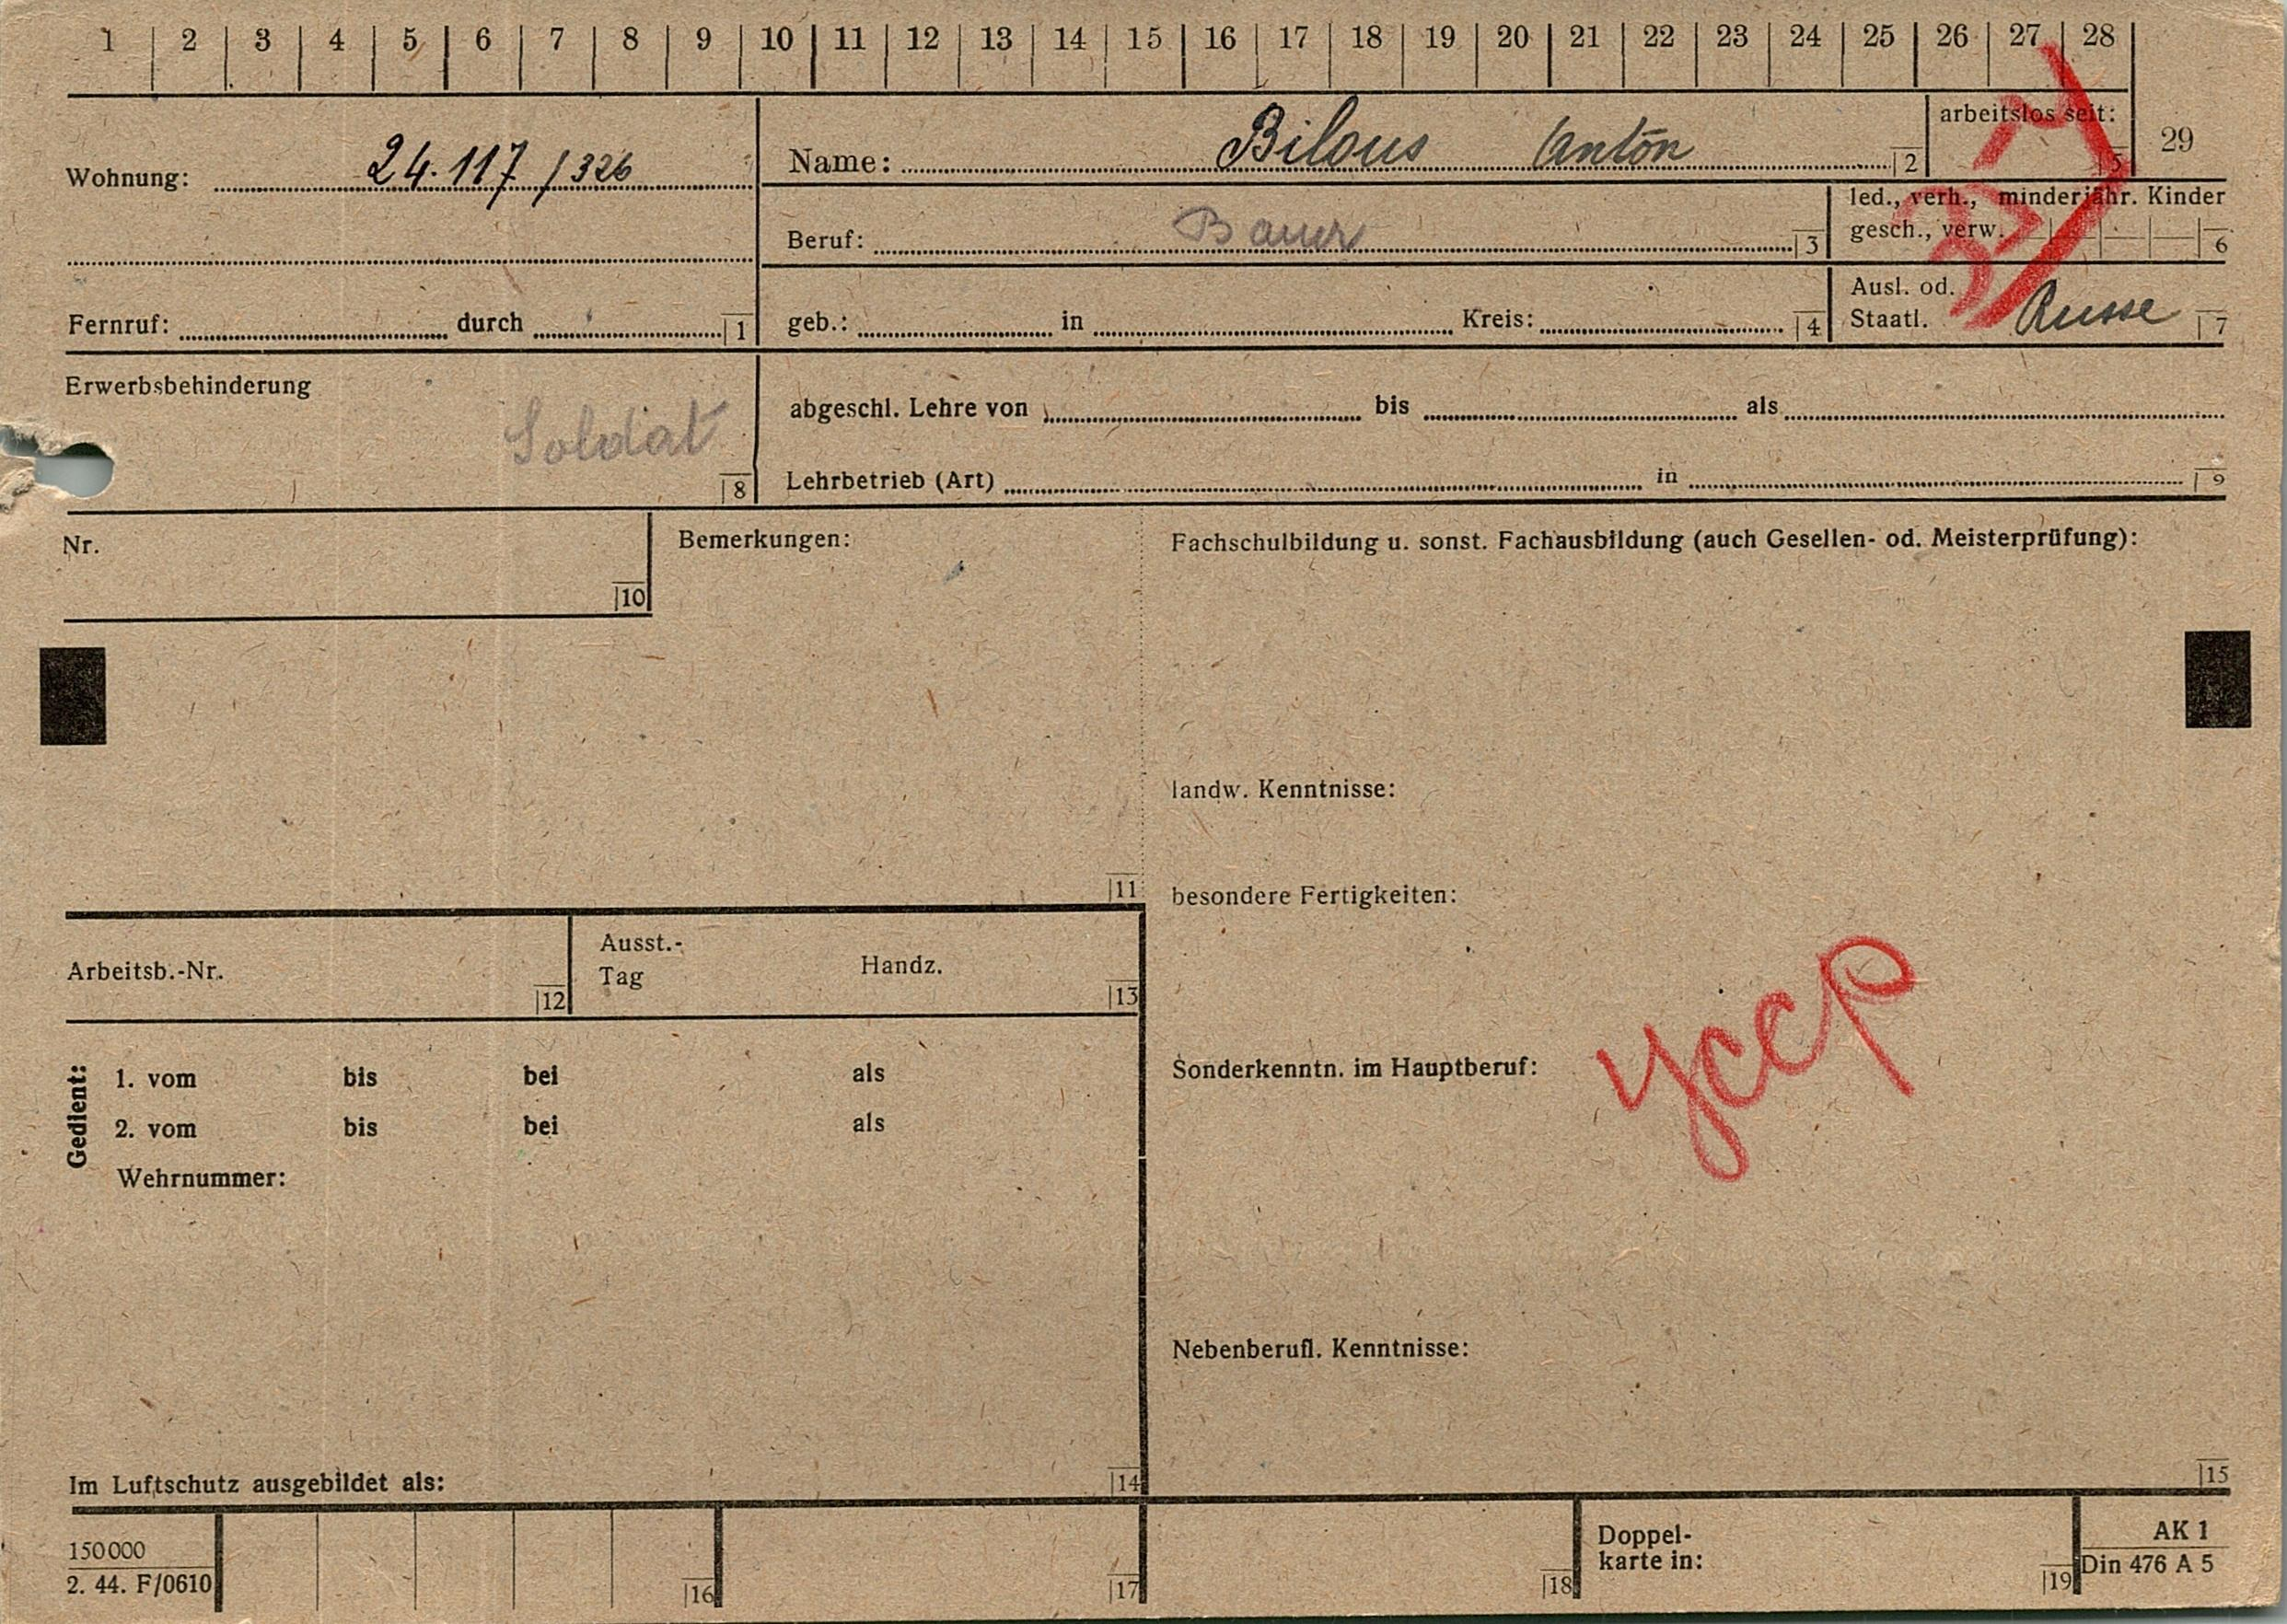 1 2 3 4 5 6 7 8 9 10 11 12 13 14 15 16 17 18 19 20 21 22 23 24 25 26 27 28
29
Wohnung: 24.117 /326
Name: Bilous Anton 2
arbeitslos seit: 5
Beruf: Bauer 3
led., verh., minderjähr. Kinder
gesch., verw. 6
Fernruf: durch 1
geb.: in Kreis: 4
Ausl. od.
Staatl. Russe 7
Erwerbsbehinderung
Soldat
8
abgeschl. Lehre von bis als
Lehrbetrieb (Art) in 9
Nr.
10
Bemerkungen:
11
Fachschulbildung u. sonst. Fachausbildung (auch Gesellen- od. Meisterprüfung):
landw. Kenntnisse:
besondere Fertigkeiten:
Arbeitsb.-Nr. 12
Ausst.-
Tag Handz. 13
Sonderkenntn. im Hauptberuf:
УССР
Gedient:
1. vom bis bei als
2. vom bis bei als
Wehrnummer:
Nebenberufl. Kenntnisse:
Im Luftschutz ausgebildet als: 14
15
150000
2. 44. F/0610
16
17
18
Doppel-
karte in: 19
AK 1
Din 476 A 5